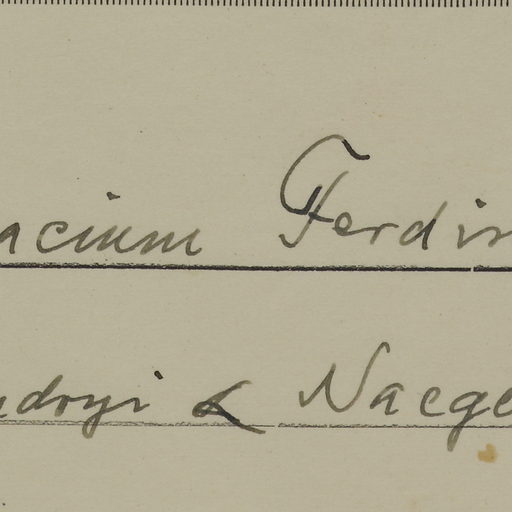 acium Ferdin
ndoryi & Naege